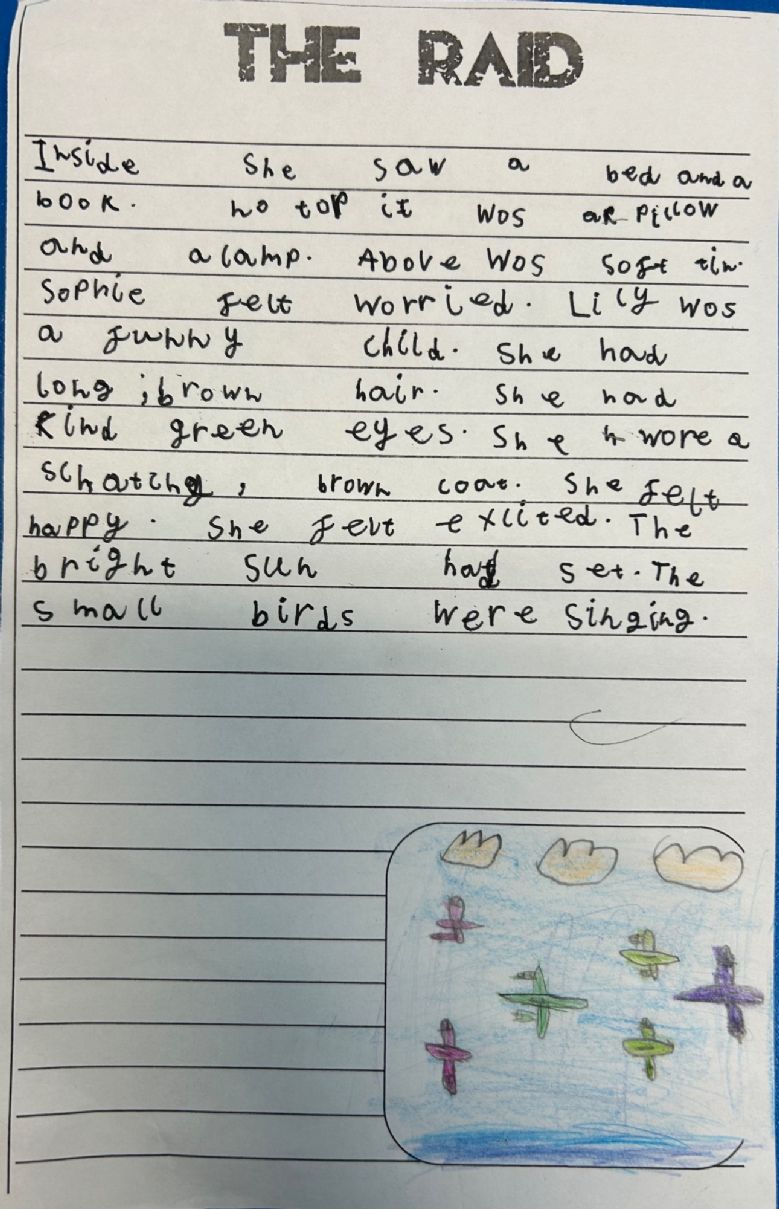 THE RAID
Inside she saw a bed and a
book. no top it wos ar pillow
and a lamp. Above wos soft tin.
Sophie felt worried. Lily wos
a funny child. She had
long ; brown hair. She had
kind green eyes. She h wore a
schatchy, brown coat. She felt
happy. She felt exlited. The
bright sun had set. The
small birds were singing.